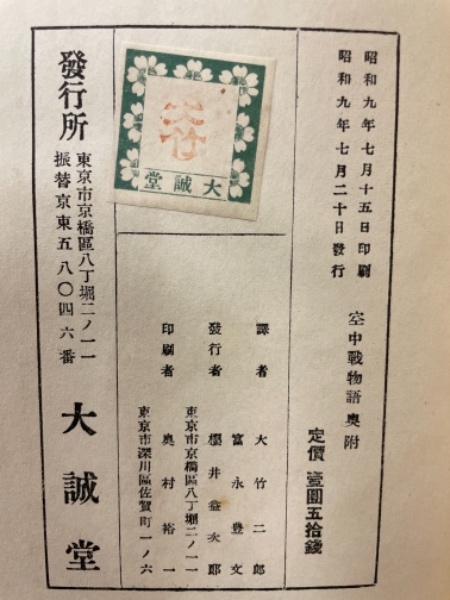 昭和九年七月十五日印刷
昭和九年七月二十日發行
空中戰物語奧附
定價 壹圓五拾錢
譯者 大竹二郎
富永豊文
發行者 櫻井益次郎
東京市京橋區八丁堀二ノ一一
印刷者 奥村裕一
東京市深川區佐賀町一ノ六
大竹
堂誠大
發行所 東京市京橋區八丁堀二ノ一一
振替京東五八〇四六番
大誠堂